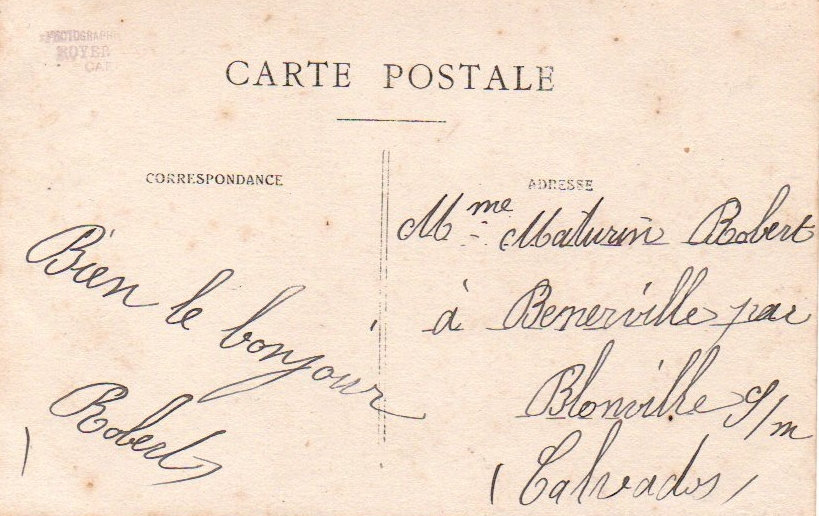 PHOTOGRAPHIE
ROYER
CARTE POSTALE
CORRESPONDANCE
ADRESSE
Bien le bonjour
Robert
Mme Maturin Robert
à Benerville par
Blonville s/m
(Calvados)